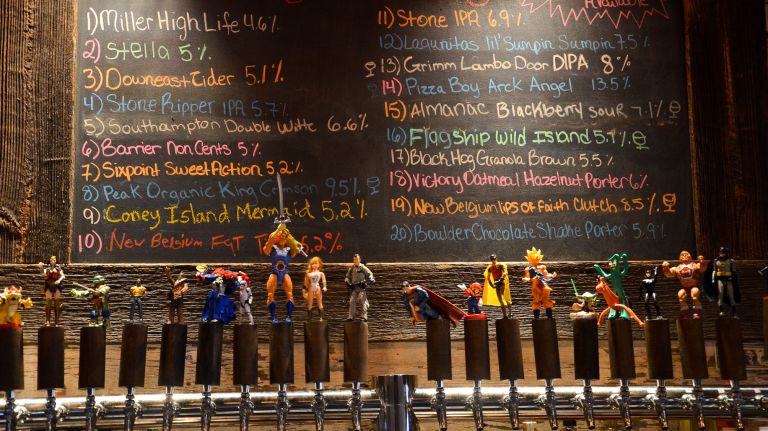 1) Miller High Life 4.6%
2) Stella 5%
3) Downeast Cider 5.1%
4) Stone Ripper IPA 5.7%
5) Southampton Double Witte 6.6%
6) Barrier Non Cents 5%
7) Sixpoint Sweet Action 5.2%
8) Peak Organic King Crimson 9.5%
9) Coney Island Mermaid 5.2%
10) New Belgium Fat 5.2%
Available
11) Stone IPA 6.9%
12) Lagunitas lil' Sumpin Sumpin 7.5%
13) Grimm Lambo Door DIPA 8%
14) Pizza Boy Arck Angel 13.5%
15) Almanac Blackberry Sour 7.1%
16) Flagship Wild Island 5.1%
17) Black Hog Granola Brown 5.5%
18) Victory Oatmeal Hazelnut Porter 6%
19) New Belgium lips of Faith Clutch 8.5%
20) Boulder Chocolate Shake Porter 5.9%